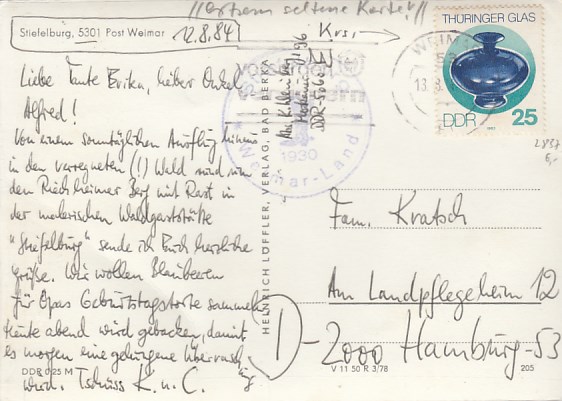 //extrem seltene Karte!//
Stiefelburg, 5301 Post Weimar
12.8.84
Krsi
Liebe Tante Erika, lieber Onkel
Alfred!
Von einem sonntäglichen Ausflug hinein
in den verregneten (!) Wald rund um
den Riechheimer Berg mit Rast in
der malerischen Waldgaststätte
"Stiefelburg" sende ich Euch herzliche
Grüße. Wir wollen Blaubeeren
für Opas Geburtstagstorte sammeln
heute abend wird gebacken, damit
es morgen eine gelungene Überraschung
wird. Tschüss K. u. C.
DDR 0,25 M
HEINRICH LÖFFLER, VERLAG, BAD BERKA
DDR-5060
1930
Weimar-Land
WEIM
13.8
THÜRINGER GLAS
DDR
25
2837
Fam. Kratsch
Am Landpflegeheim 12
D-2000 Hamburg-53
V 11 50 R 3/78
205